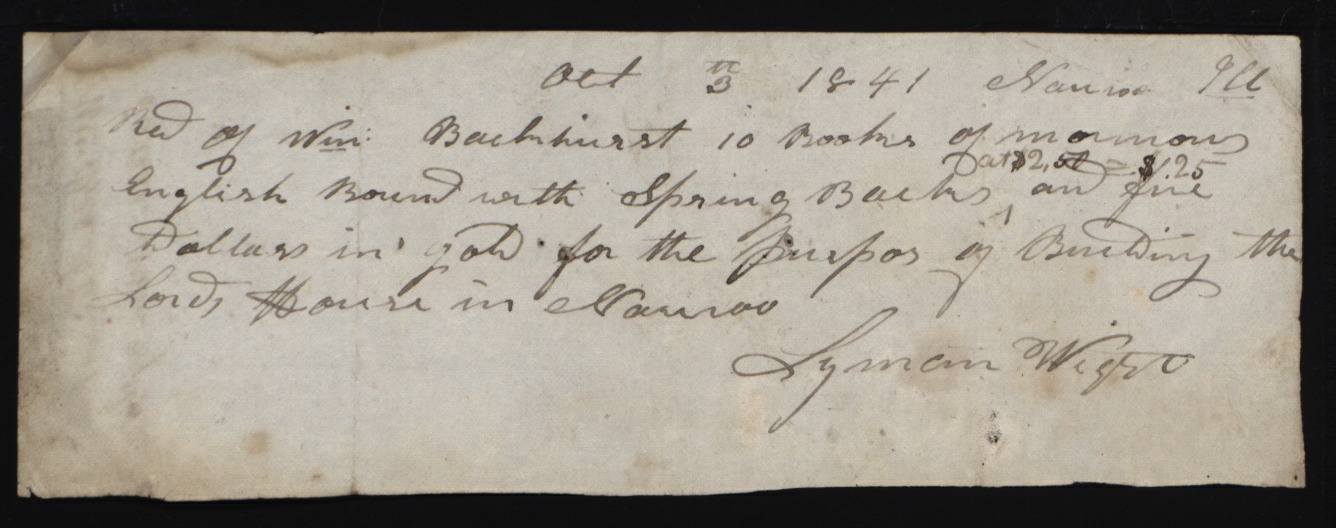 Oct 3th 1841 Nauvoo Ill
Recd of Wm Backhurst 10 Books of mormons
at $2,50 = $1.25
English Bound with Spring Backs, and five
Dollars in gold for the purpos of Building the
Lords House in Nauvoo
Lyman Wight